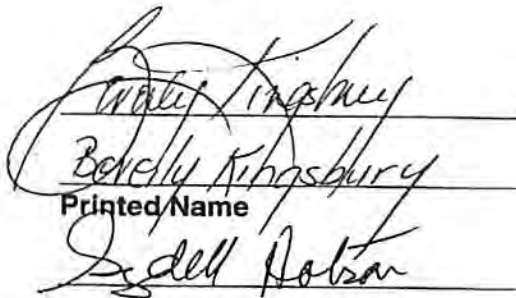 Beverly Kingsbury
Beverly Kingsbury
Printed Name
Sydell Hobson